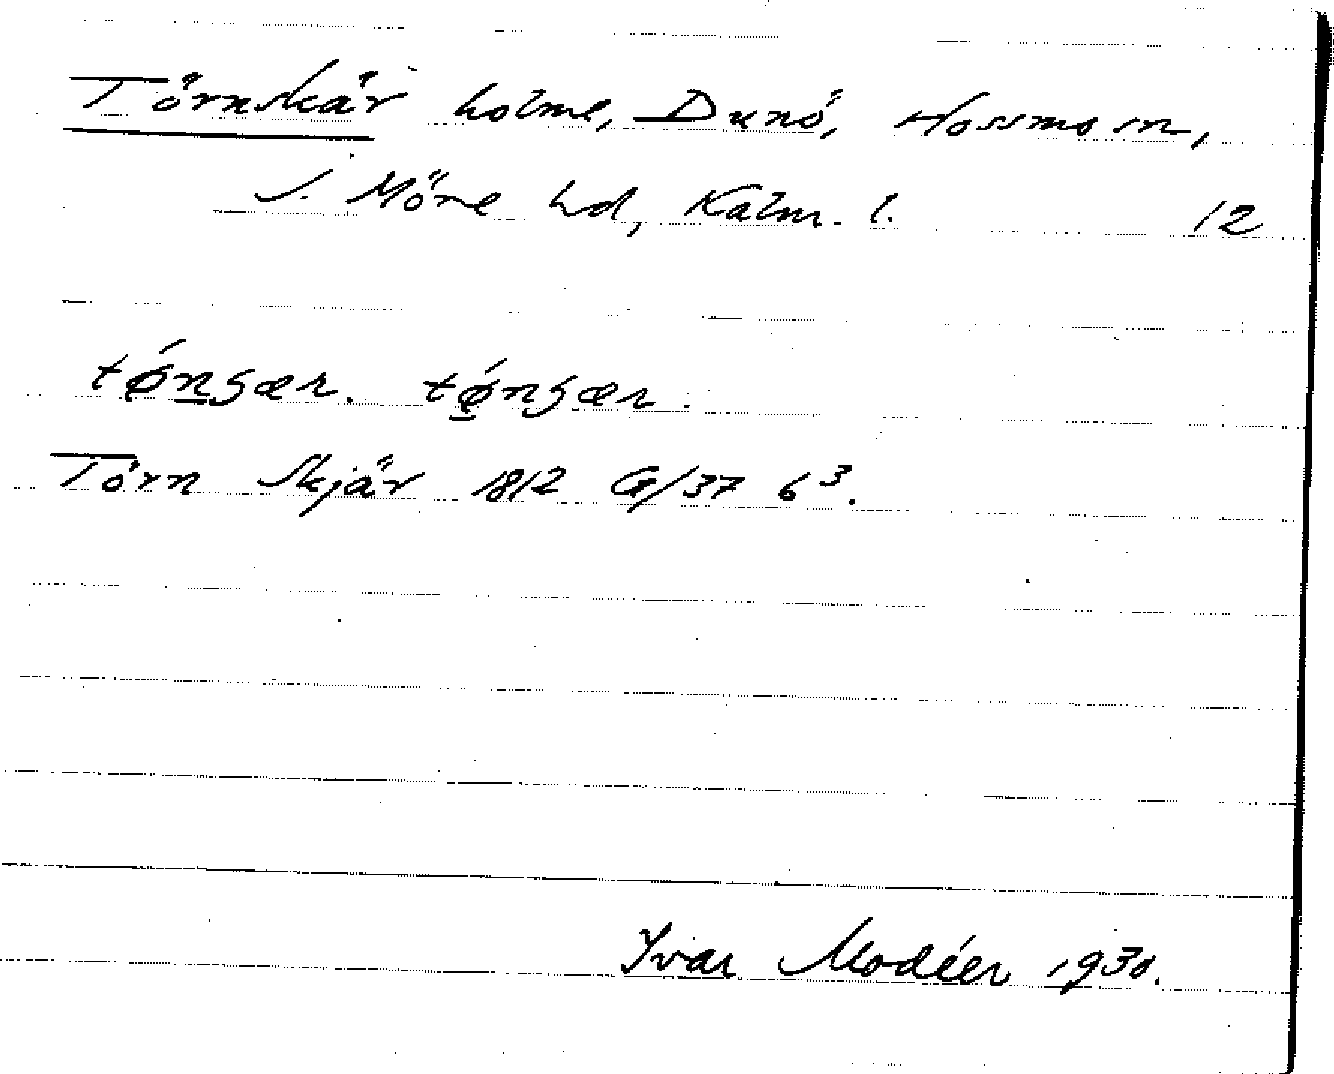 Törnskär holme, Dunö, Hossmo sn,
S. Möre hd, Kalm. l. 12
tǿnʂær. tǿnʂær.
Törn Skjär 1812 G/37 6³.
Ivar Modéer 1930.